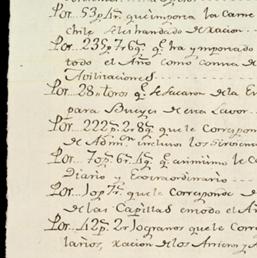 Por.. 53p 4r. que importa la Carne
Chile Almandado de xacion
Por.. 235p 7r 6g. qe. ha ymportado
todo el Año como conva de
Avilitaciones
Por.. 28 toros qe. se sacaron de la En
para Bueyes de esta Lavor
Por.. 222p. 2r 8g. que le Correspon
de Admn. inclusos los Sirvien
Por.. 70p. 6r. 4g. asimismo le Ca
Diario y Extraordinario
Por... 30p 7r. que le Corresponde
de las Capillas en todo el Añ
Por.. 42p. 2r 10 granos que le Corre
larios, xacion de los Arrieros y A